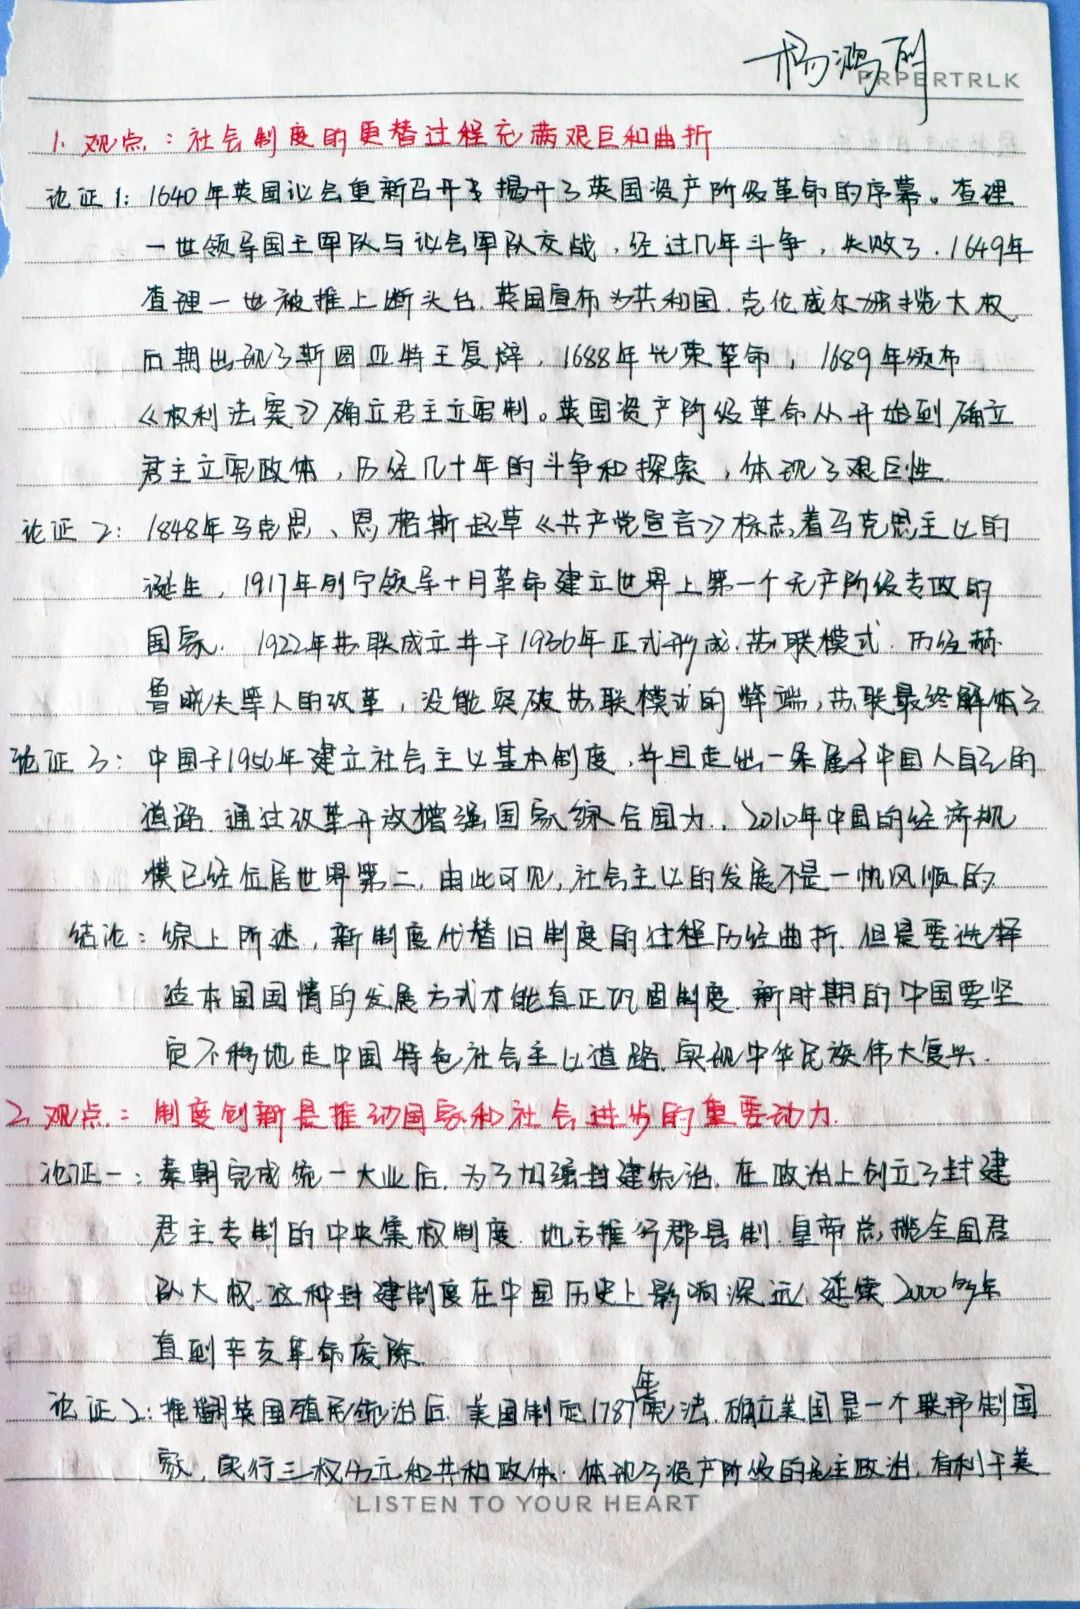 杨鸿
PRPERTRLK
1. 观点：社会制度的更替过程充满艰巨和曲折
论证1：1640年英国议会重新召开揭开了英国资产阶级革命的序幕。查理
一世领导国王军队与议会军队交战，经过几年斗争，失败了．1649年
查理一世被推上断头台．英国宣布为共和国．克伦威尔独揽大权．
后期出现了斯图亚特王复辟，1688年光荣革命，1689年颁布
《权利法案》确立君主立宪制。英国资产阶级革命从开始到确立
君主立宪政体，历经几十年的斗争和探索，体现了艰巨性．
论证2：1848年马克思、恩格斯起草《共产党宣言》标志着马克思主义的
诞生，1917年列宁领导十月革命建立世界上第一个无产阶级专政的
国家．1922年苏联成立并于1936年正式形成．苏联模式．历经赫
鲁晓夫等人的改革，没能突破苏联模式的弊端，苏联最终解体了
论证3：中国于1956年建立社会主义基本制度，并且走出一条属于中国人自己的
道路．通过改革开放增强国家综合国力．，2010年中国的经济规
模已经位居世界第二．由此可见，社会主义的发展不是一帆风顺的．
结论：综上所述，新制度代替旧制度的过程历经曲折．但是要选择
适本国国情的发展方式才能真正巩固制度．新时期的中国要坚
定不移地走中国特色社会主义道路．实现中华民族伟大复兴．
2. 观点：制度创新是推动国家和社会进步的重要动力．
论证一：秦朝完成统一大业后．为了加强封建统治．在政治上创立了封建
君主专制的中央集权制度．地方推行郡县制．皇帝总揽全国军
队大权．这种封建制度在中国历史上影响深远，延续2000多年
直到辛亥革命废除．
论证2：推翻英国殖民统治后．美国制定1787年宪法．确立美国是一个联邦制国
家，实行三权分立和共和政体．体现了资产阶级的民主政治．有利于美
LISTEN TO YOUR HEART